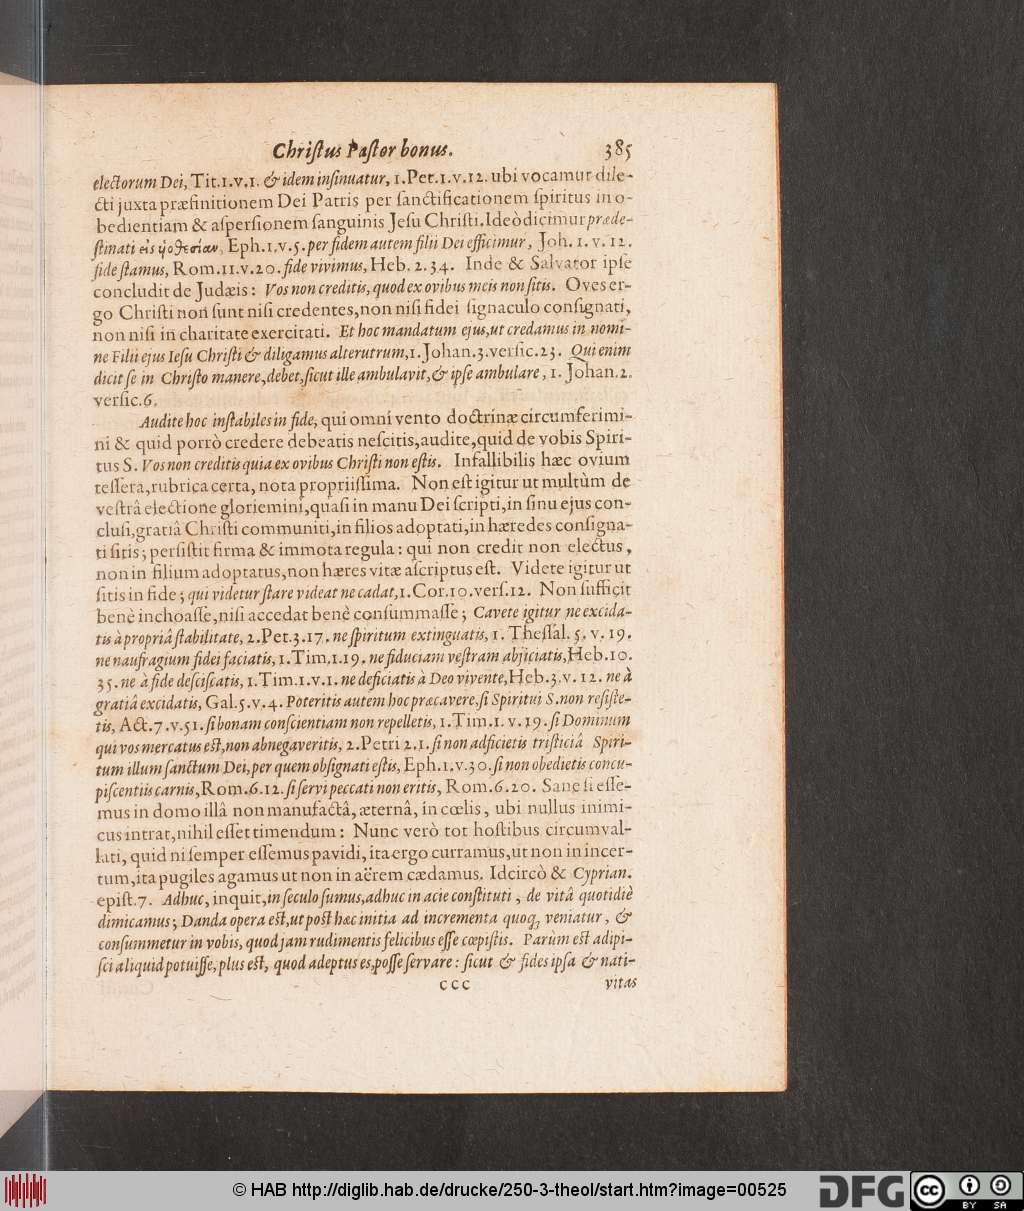 Chriſtus Paſtor bonus. 385
electorum Dei, Tit.1.v.1. & idem inſinuatur, 1.Pet.1.v.12. ubi vocamur dile-
cti juxta præfinitionem Dei Patris per ſanctificationem ſpiritus in o-
bedientiam & aſperſionem ſanguinis Jeſu Chriſti. Ideò dicimur præde-
ſtinati εἰς υἱοθεσίαν, Eph.1.v.5. per fidem autem filii Dei efficimur, Joh. 1. v. 12.
fide ſtamus, Rom.11.v.20. fide vivimus, Heb. 2.34. Inde & Salvator ipſe
concludit de Judæis: Vos non creditis, quod ex ovibus meis non ſitis. Oves er-
go Chriſti non ſunt niſi credentes, non niſi fidei ſignaculo conſignati,
non niſi in charitate exercitati. Et hoc mandatum ejus, ut credamus in nomi-
ne Filii ejus Ieſu Chriſti & diligamus alterutrum, 1.Johan.3.verſic.23. Qui enim
dicit ſe in Chriſto manere, debet, ſicut ille ambulavit, & ipſe ambulare, 1. Johan.2.
verſic.6.
Audite hoc inſtabiles in fide, qui omni vento doctrinæ circumferimi-
ni & quid porrò credere debeatis neſcitis, audite, quid de vobis Spiri-
tus S. Vos non creditis quia ex ovibus Chriſti non eſtis. Infallibilis hæc ovium
teſſera, rubrica certa, nota propriiſſima. Non eſt igitur ut multùm de
veſtrâ electione gloriemini, quaſi in manu Dei ſcripti, in ſinu ejus con-
cluſi, gratiâ Chriſti communiti, in filios adoptati, in hæredes conſigna-
ti ſitis; perſiſtit firma & immota regula: qui non credit non electus,
non in filium adoptatus, non hæres vitæ aſcriptus eſt. Videte igitur ut
ſitis in fide; qui videtur ſtare videat ne cadat, 1.Cor.10.verſ.12. Non ſufficit
benè inchoaſſe, niſi accedat benè conſummaſſe; Cavete igitur ne excida-
tis à propriâ ſtabilitate, 2.Pet.3.17. ne ſpiritum extinguatis, 1. Theſſal. 5. v. 19.
ne naufragium fidei faciatis, 1.Tim.1.19. ne fiduciam veſtram abjiciatis, Heb.10.
35. ne à fide deſciſcatis, 1.Tim.1.v.1. ne deficiatis à Deo vivente, Heb.3.v. 12. ne à
gratiâ excidatis, Gal.5.v.4. Poteritis autem hoc præcavere, ſi Spiritui S. non reſiſte-
tis, Act.7.v.51. ſi bonam conſcientiam non repelletis, 1.Tim.1. v.19. ſi Dominum
qui vos mercatus eſt, non abnegaveritis, 2.Petri 2.1. ſi non adficietis triſticiâ Spiri-
tum illum ſanctum Dei, per quem obſignati eſtis, Eph.1.v.30. ſi non obedietis concu-
piſcentiis carnis, Rom.6.12. ſi ſervi peccati non eritis, Rom.6.20. Sanè ſi eſſe-
mus in domo illâ non manufactâ, æternâ, in cœlis, ubi nullus inimi-
cus intrat, nihil eſſet timendum: Nunc verò tot hoſtibus circumval-
lati, quid ni ſemper eſſemus pavidi, ita ergo curramus, ut non in incer-
tum, ita pugiles agamus ut non in aërem cædamus. Idcircò & Cyprian.
epiſt.7. Adhuc, inquit, in ſeculo ſumus, adhuc in acie conſtituti, de vitâ quotidiè
dimicamus; Danda opera eſt, ut poſt hæc initia ad incrementa quoq; veniatur, &
conſummetur in vobis, quod jam rudimentis felicibus eſſe cœpiſtis. Parùm eſt adipi-
ſci aliquid potuiſſe, plus eſt, quod adeptus es, poſſe ſervare: ſicut & fides ipſa & nati-
ccc vitas
© HAB http://diglib.hab.de/drucke/250-3-theol/start.htm?image=00525
DFG
cc BY SA